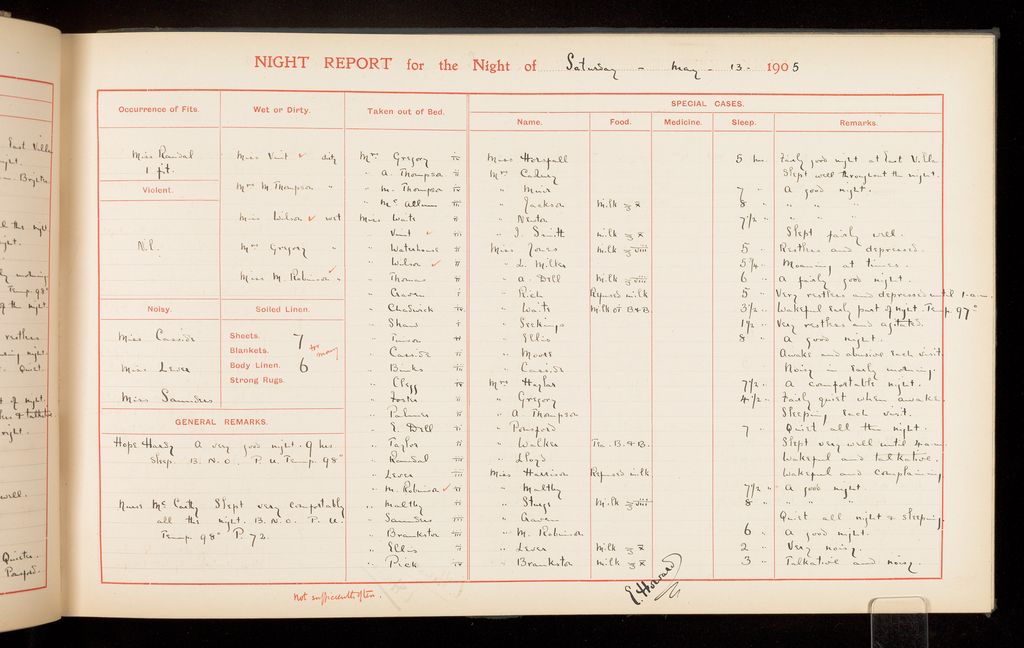 NIGHT REPORT for the Night of Saturday - May - 13 - 1905
Occurrence of Fits.
Miss Randal
1 fit.
Violent.
Nil.
Noisy.
Miss Cassidi
Miss Lever
Miss Saunders
Wet or Dirty.
Miss Vint ✓ dirty
Mrs M Thompson "
Miss Wilson ✓ wet
Mrs Gregory "
Miss M. Robinson ✓ "
Soiled Linen.
Sheets. 7
Blankets.
Body Linen. 6
Strong Rugs.
too many
GENERAL REMARKS.
Hope Hardy A very good night. 9 hrs
Sleep. B.N.O. P.U. Temp. 98°
Nurse Mc Carthy Slept very comfortably
all the night. B.N.O. P.U.
Temp. 98° P. 72.
Taken out of Bed.
Mrs Gregory
" A. Thompson
" M. Thompson
" Mc Allum
Miss Waits
" Vint ✓
" Waterhouse
" Wilson ✓
" Thomas
" Craven
" Chadwick
" Shaw
" Cassidi
" Binks
" Clegg
" Foster
" Palmer
" E. Dill
" Taylor
" Randal
" Lever
" M. Robinson ✓
" Maltby
" Saunders
" Brankston
" Ellis
" Pick
SPECIAL CASES.
Name. Food. Medicine. Sleep. Remarks.
Miss Horsfall 5 hrs. Fairly good night at East Villa
Mrs Slept well throughout the night.
" Muir 7 " A good night.
" Jackson Milk ℥ x 8 " " " "
" Newton 7 1/2 " " " "
" J. Smith Milk ℥ x Slept fairly well.
Miss Jones Milk ℥ viii 5 " Restless and depressed.
" L. Milker 5 3/4 " Moaning at times.
" A. Dill Milk ℥ viii 6 " A fairly good night.
" Rich Refused milk 5 " Very restless and depressed until 1 a.m.
" Waits Milk or B & B. 3 1/2 " Wakeful early part of night. Temp. 97°
" Seekings 1 1/2 " Very restless and agitated.
" Ellis 8 " A good night.
" Moore Awake and abusive each visit.
" Cassidi Noisy in early morning.
Mrs Haylar 7 1/2 " A comfortable night.
" Gregory 4 1/2 " Fairly quiet when awake.
" A. Thompson Sleeping each visit.
" Ponsford 7 " Quiet all the night.
" Walker Tea. B. & B. Slept very well until 4 a.m.
" Lloyd Wakeful and talkative.
Miss Harrison Refused milk Wakeful and complaining
" Maltby 7 1/2 " A good night.
" Sturge Milk ℥ viii 8 " " " "
" Craven Quiet all night & sleeping.
" M. Robinson 6 " A good night.
" Lever Milk ℥ x 2 " Very noisy.
" Brankston Milk ℥ x 3 " Talkative and noisy.
Not sufficiently often.
E. Howard
East Villa
Brighter
Temp. 98°
of the night
restless
Quiet.
of night.
night.
well.
Quieter.
Ponsford.